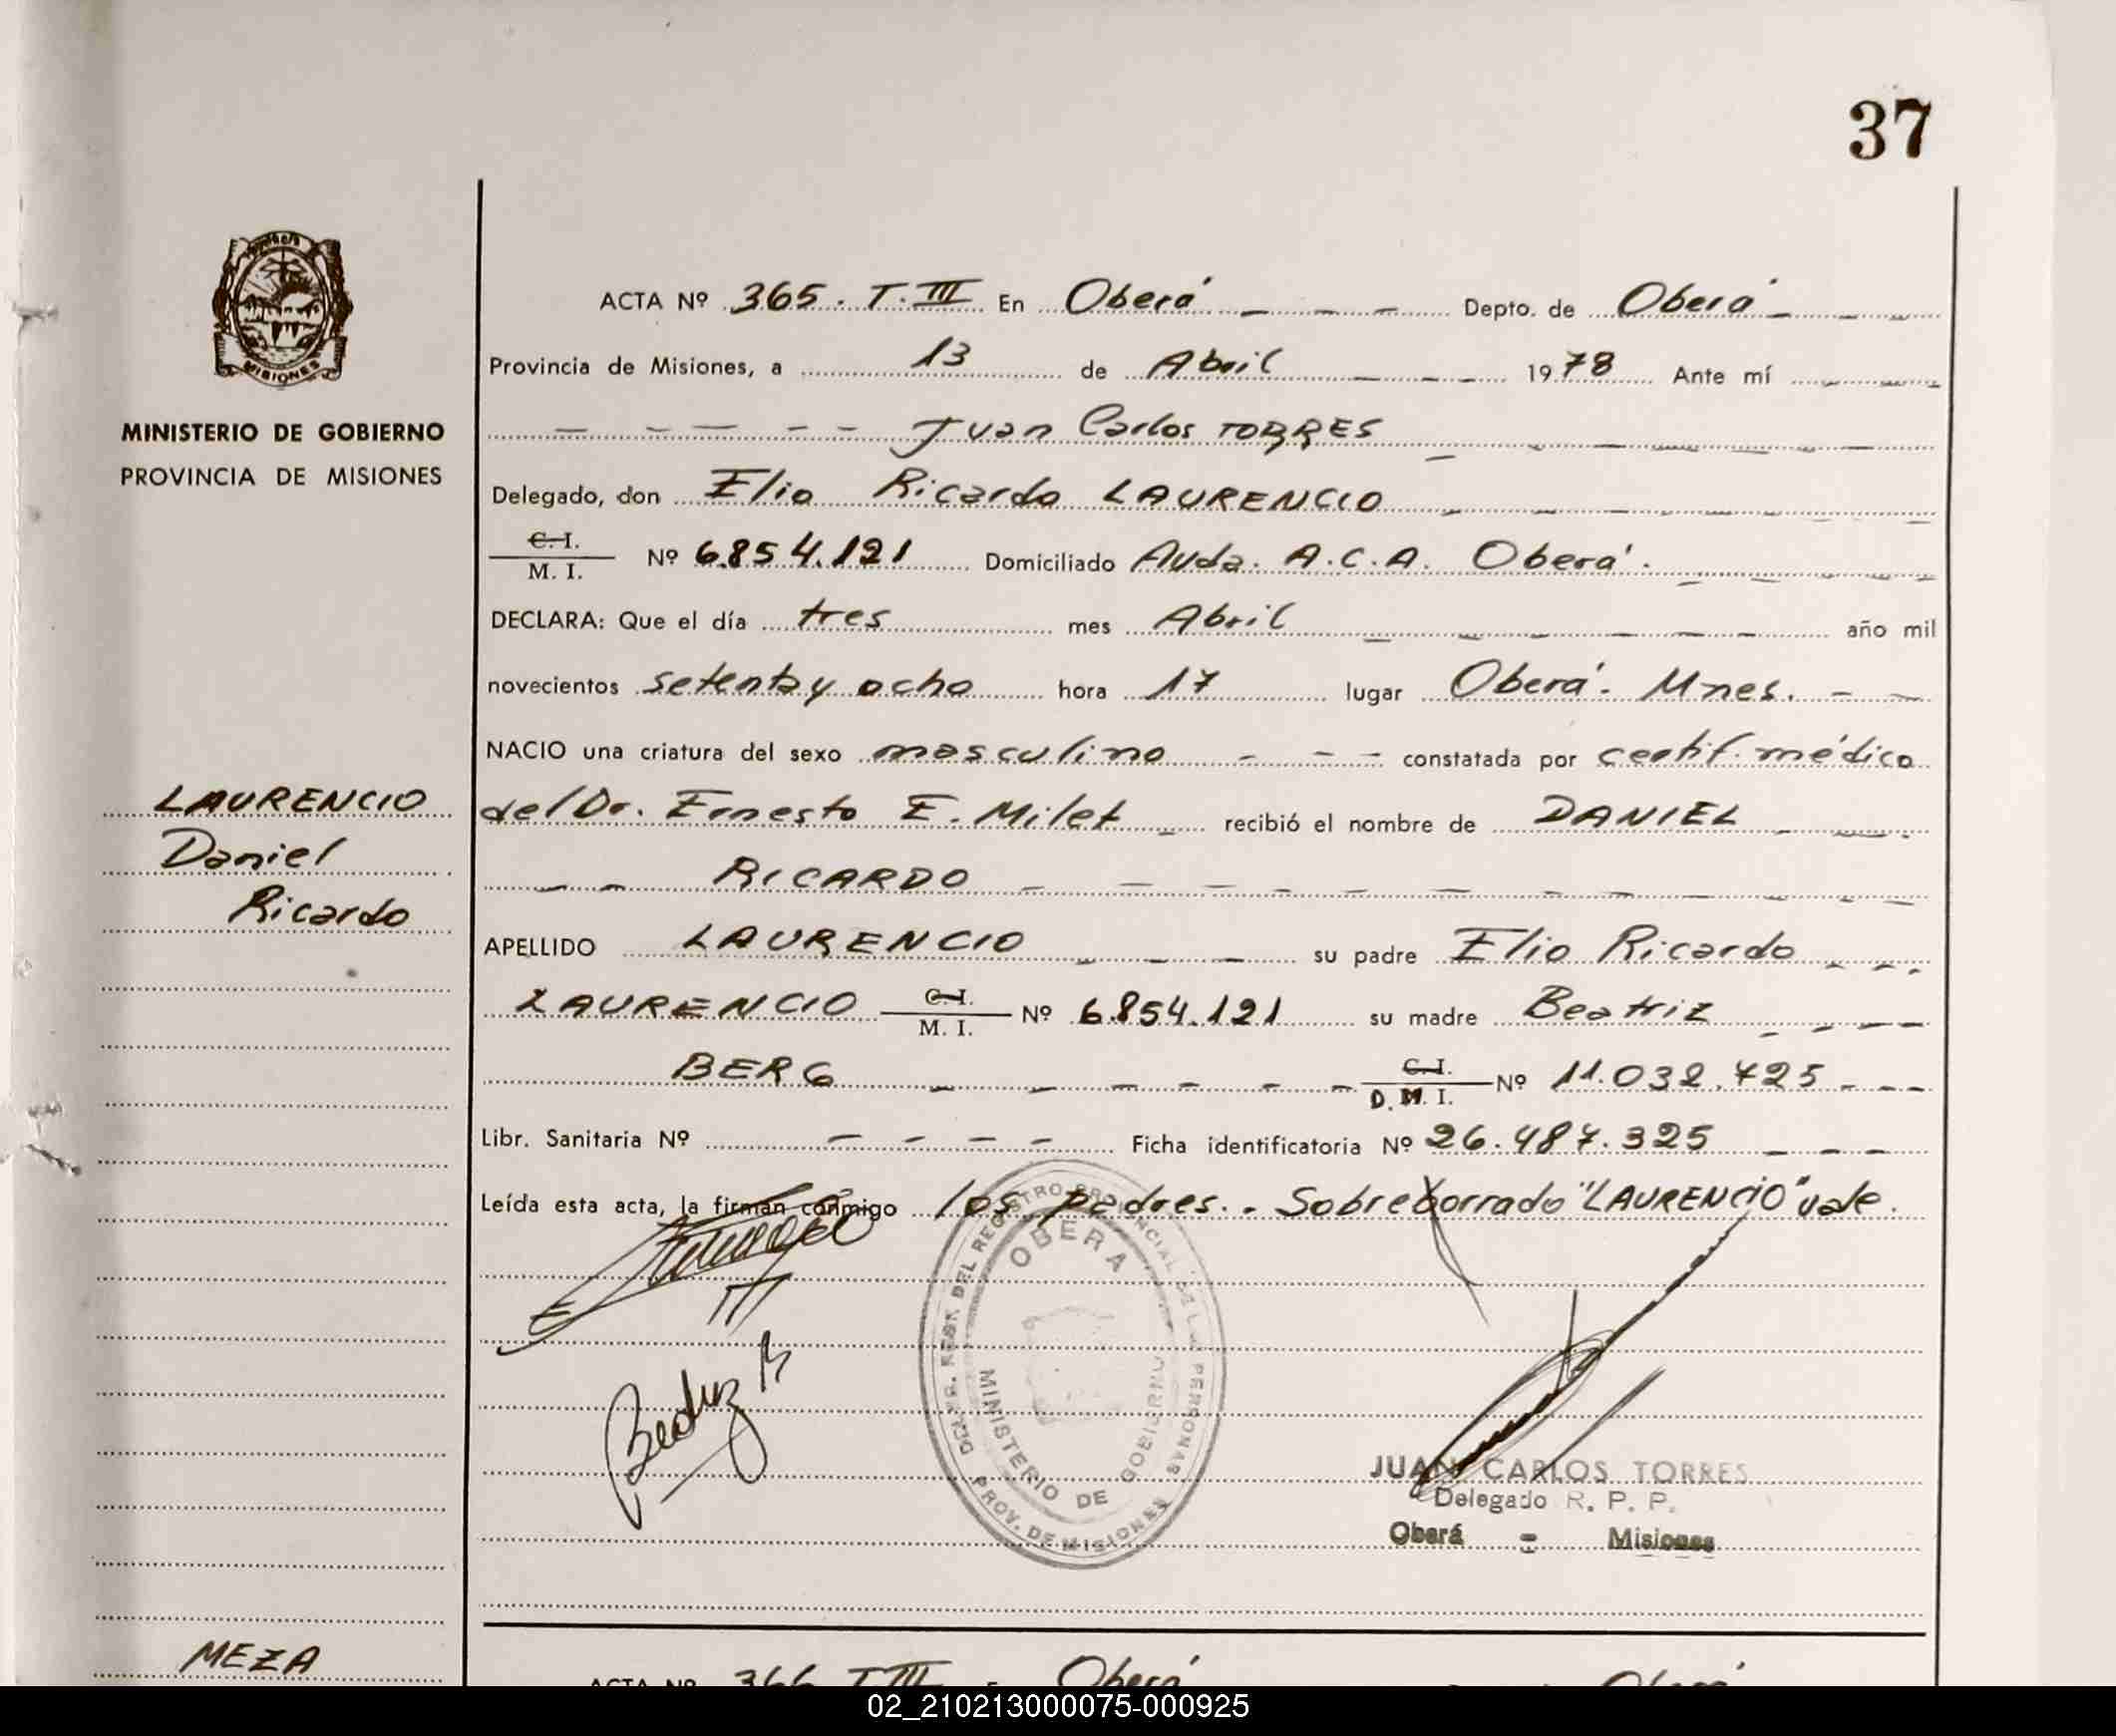 37
MISIONES
MINISTERIO DE GOBIERNO
PROVINCIA DE MISIONES
ACTA Nº 365. T. III En Oberá Depto. de Oberá
Provincia de Misiones, a 13 de Abril 1978 Ante mí
Juan Carlos TORRES
Delegado, don Elio Ricardo LAURENCIO
C. I.
M. I. Nº 6.854.121 Domiciliado Avda. A.C.A. Oberá.
DECLARA: Que el día tres mes Abril año mil
novecientos setenta y ocho hora 17 lugar Oberá. Mnes.
NACIO una criatura del sexo masculino constatada por certif. médico
LAURENCIO
Daniel
Ricardo
del Dr. Ernesto E. Milet recibió el nombre de DANIEL
RICARDO
APELLIDO LAURENCIO su padre Elio Ricardo
LAURENCIO C. I. M. I. Nº 6.854.121 su madre Beatriz
BERG C. I. D. M. I. Nº 11.032.425
Libr. Sanitaria Nº Ficha identificatoria Nº 26.487.325
Leída esta acta, la firman conmigo los padres. - Sobreborrado "LAURENCIO" vale.
Beatriz B
OBERA
MINISTERIO DE GOBIERNO
PROV. DE MISIONES
JUAN CARLOS TORRES
Delegado R. P. P.
Oberá - Misiones
MEZA
ACTA Nº 366 T III En Oberá Oberá
02_210213000075-000925